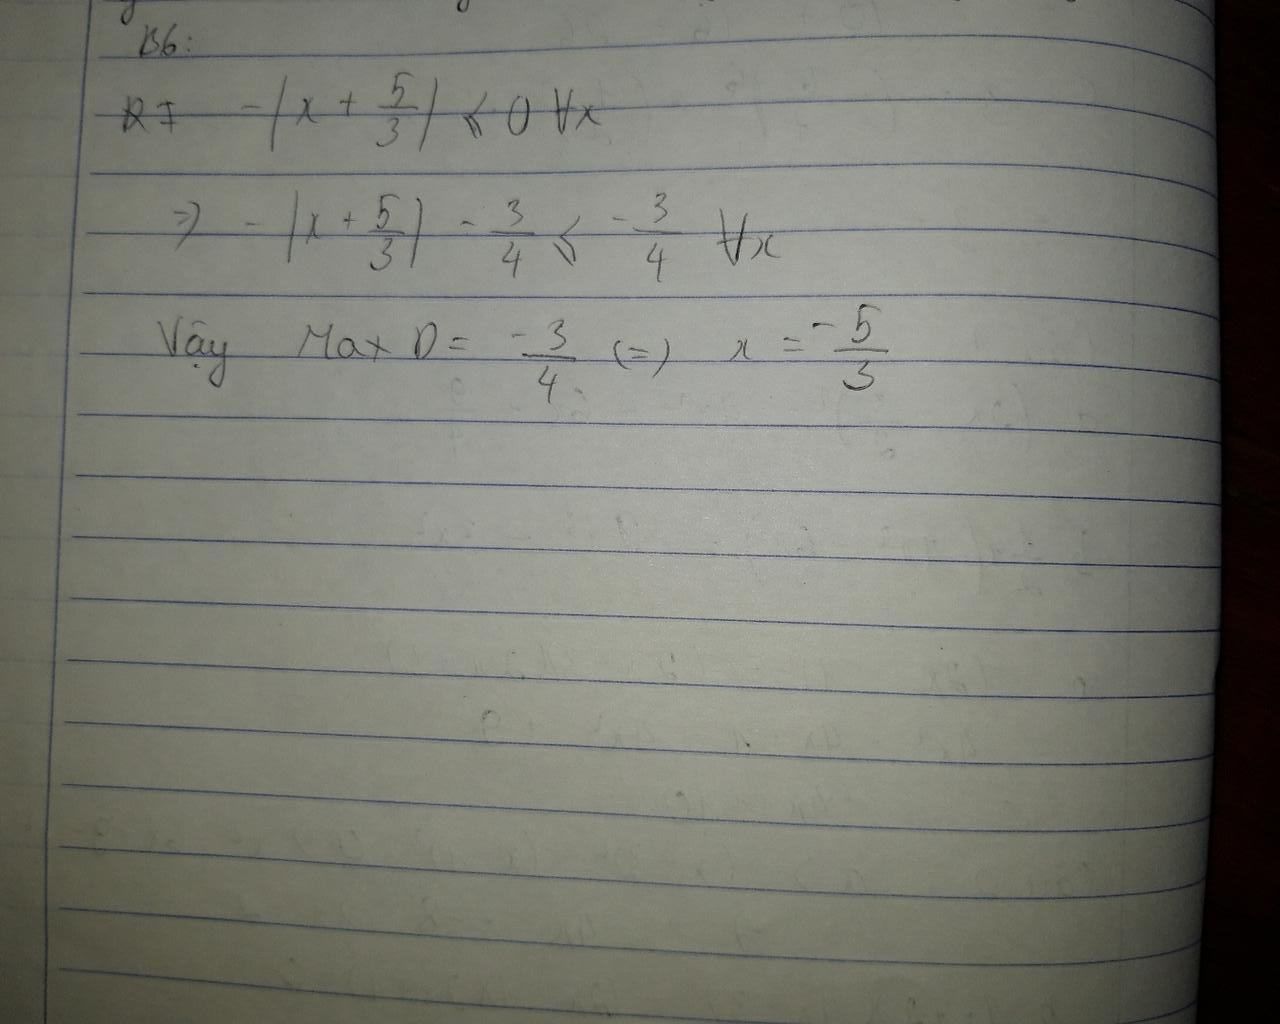 B6:
-|x + 5/3| ⩽ 0 ∀x
=> -|x + 5/3| - 3/4 ⩽ -3/4 ∀x
Vậy Max D = -3/4 (=) x = -5/3